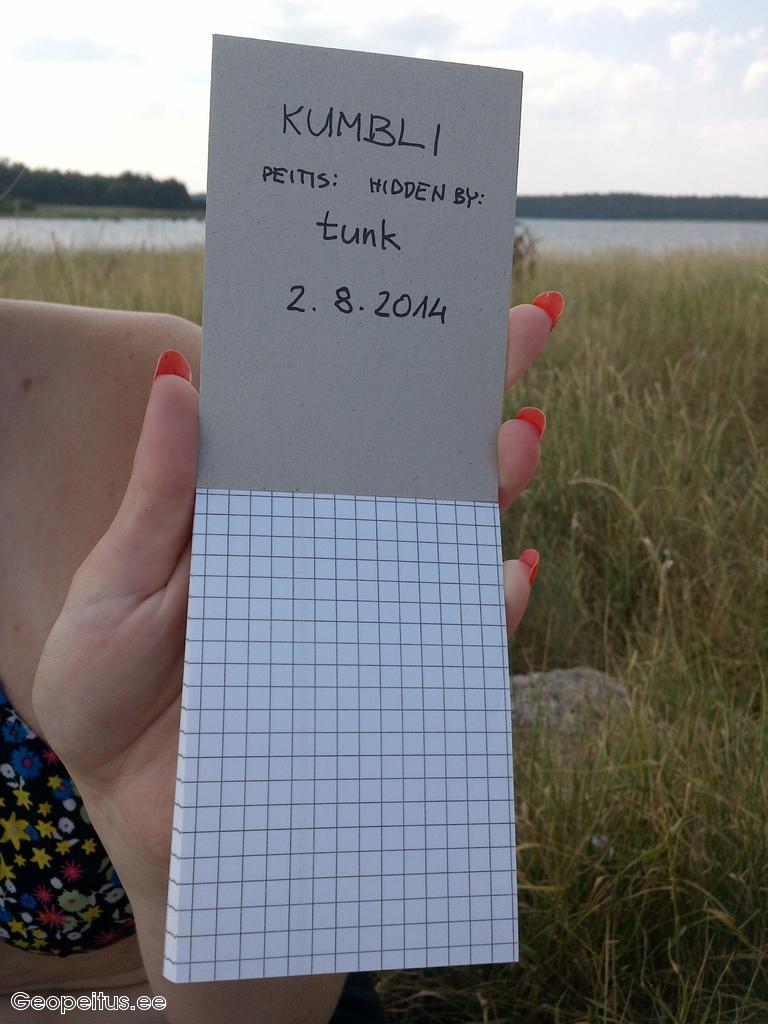 KUMBLI
PEITIS: HIDDEN BY:
tunk
2. 8. 2014
Geopeitus.ee